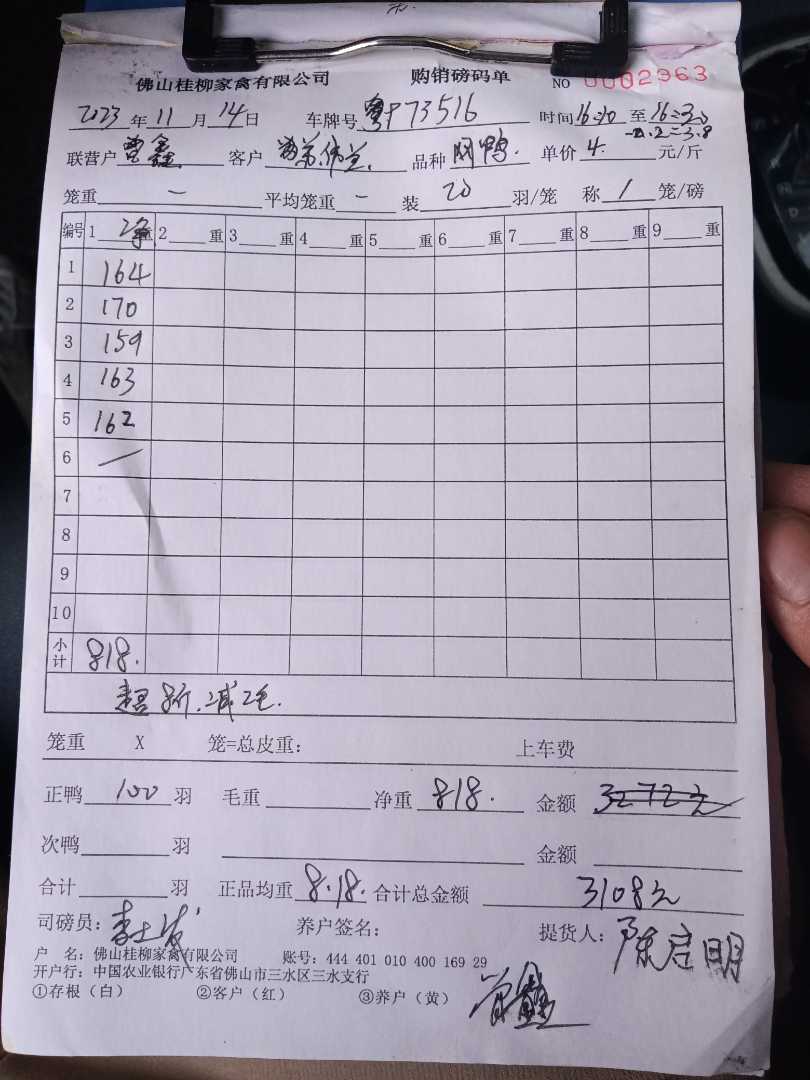 佛山桂柳家禽有限公司 购销磅码单 NO 0002963
2023年11月14日 车牌号 粤F73516 时间16:10至16:30
-0.2=3.8
联营户 曾鑫 客户 品种 网鸭. 单价 4. 元/斤
笼重 — 平均笼重 — 装 20 羽/笼 称 1 笼/磅
编号 1 净重 2 重 3 重 4 重 5 重 6 重 7 重 8 重 9 重
1 164
2 170
3 159
4 163
5 162
6 —
7
8
9
10
小计 818.
超8斤.减2毛.
笼重 X 笼=总皮重: 上车费
正鸭 100 羽 毛重 净重 818. 金额 3272元
次鸭 羽 金额
合计 羽 正品均重 8.18. 合计总金额 3108元
司磅员: 养户签名: 提货人: 陈启明
户 名: 佛山桂柳家禽有限公司 账号: 444 401 010 400 169 29
开户行: 中国农业银行广东省佛山市三水区三水支行
①存根(白) ②客户(红) ③养户(黄) 曾鑫